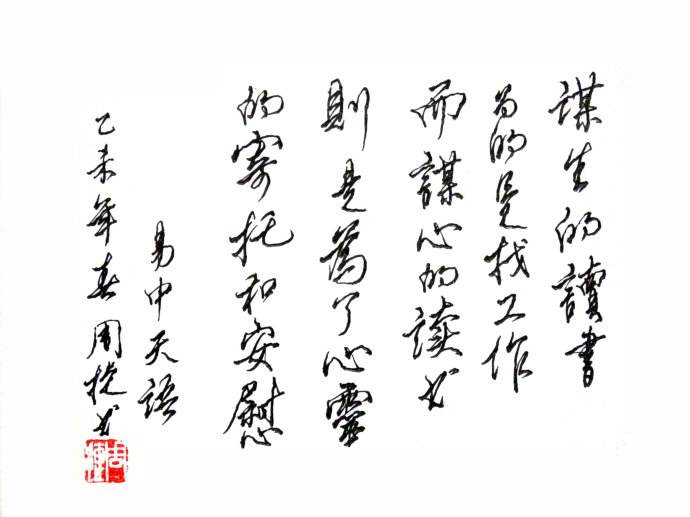 謀生的讀書
为的是找工作
而謀心的读书
則是為了心靈
的寄托和安慰
易中天語
乙未年春周捷书